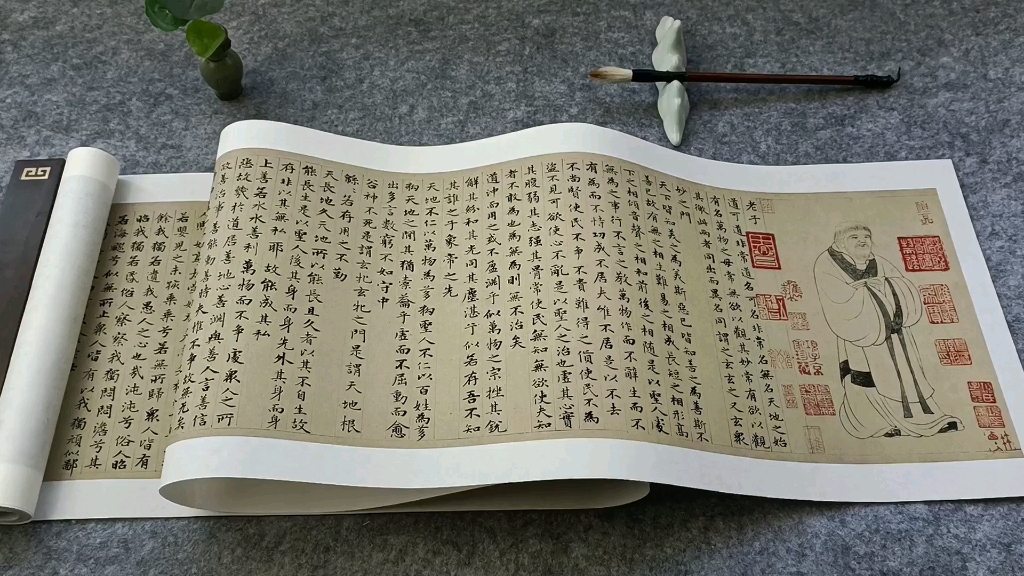 老子
道可道非常道名可名非常名無名天地之始
有名萬物之母常無欲以觀其妙常有欲以觀
其徼此兩者同出而異名同謂之玄玄之又玄衆
妙之門
天下皆知美之為美斯惡已皆知善之為善斯不
善已故有無之相生難易之相成長短之相形高
下之相傾音聲之相和前後之相隨是以聖人處
無為之事行不言之教萬物作而不辭生而不
有為而不恃功成不居夫惟不居是以不去
不尚賢使民不爭不貴難得之貨使民不為
盜不見可欲使心不亂是以聖人之治也虛其心實
其腹弱其志強其骨常使民無知無欲使夫知
者不敢為也為無為則無不治矣
道沖而用之或不盈淵乎似萬物之宗挫其銳
解其紛和其光同其塵湛兮似若存吾不知
其誰之子象帝之先
天地不仁以萬物為芻狗聖人不仁以百姓為芻
狗天地之間其猶橐籥乎虛而不屈動而愈
出多言數窮不如守中
谷神不死是謂玄牝玄牝之門是謂天地根
緜緜若存用之不勤
天長地久天地所以能長且久者以其不自生故
能長生是以聖人後其身而身先外其身而身
存非以其無私耶故能成其私
上善若水水善利萬物而不爭處衆人之所
惡故幾於道居善地心善淵與善人言善信
政善治事善能動善時夫惟不爭故無尤矣
若嬰兒之未孩乘乘兮若無所歸衆人皆有
餘我獨若遺我愚人之心也哉沌沌兮俗人昭
昭我獨若昏俗人察察我獨悶悶澹兮其
若海飂兮似無所止衆人皆有以我獨頑似鄙